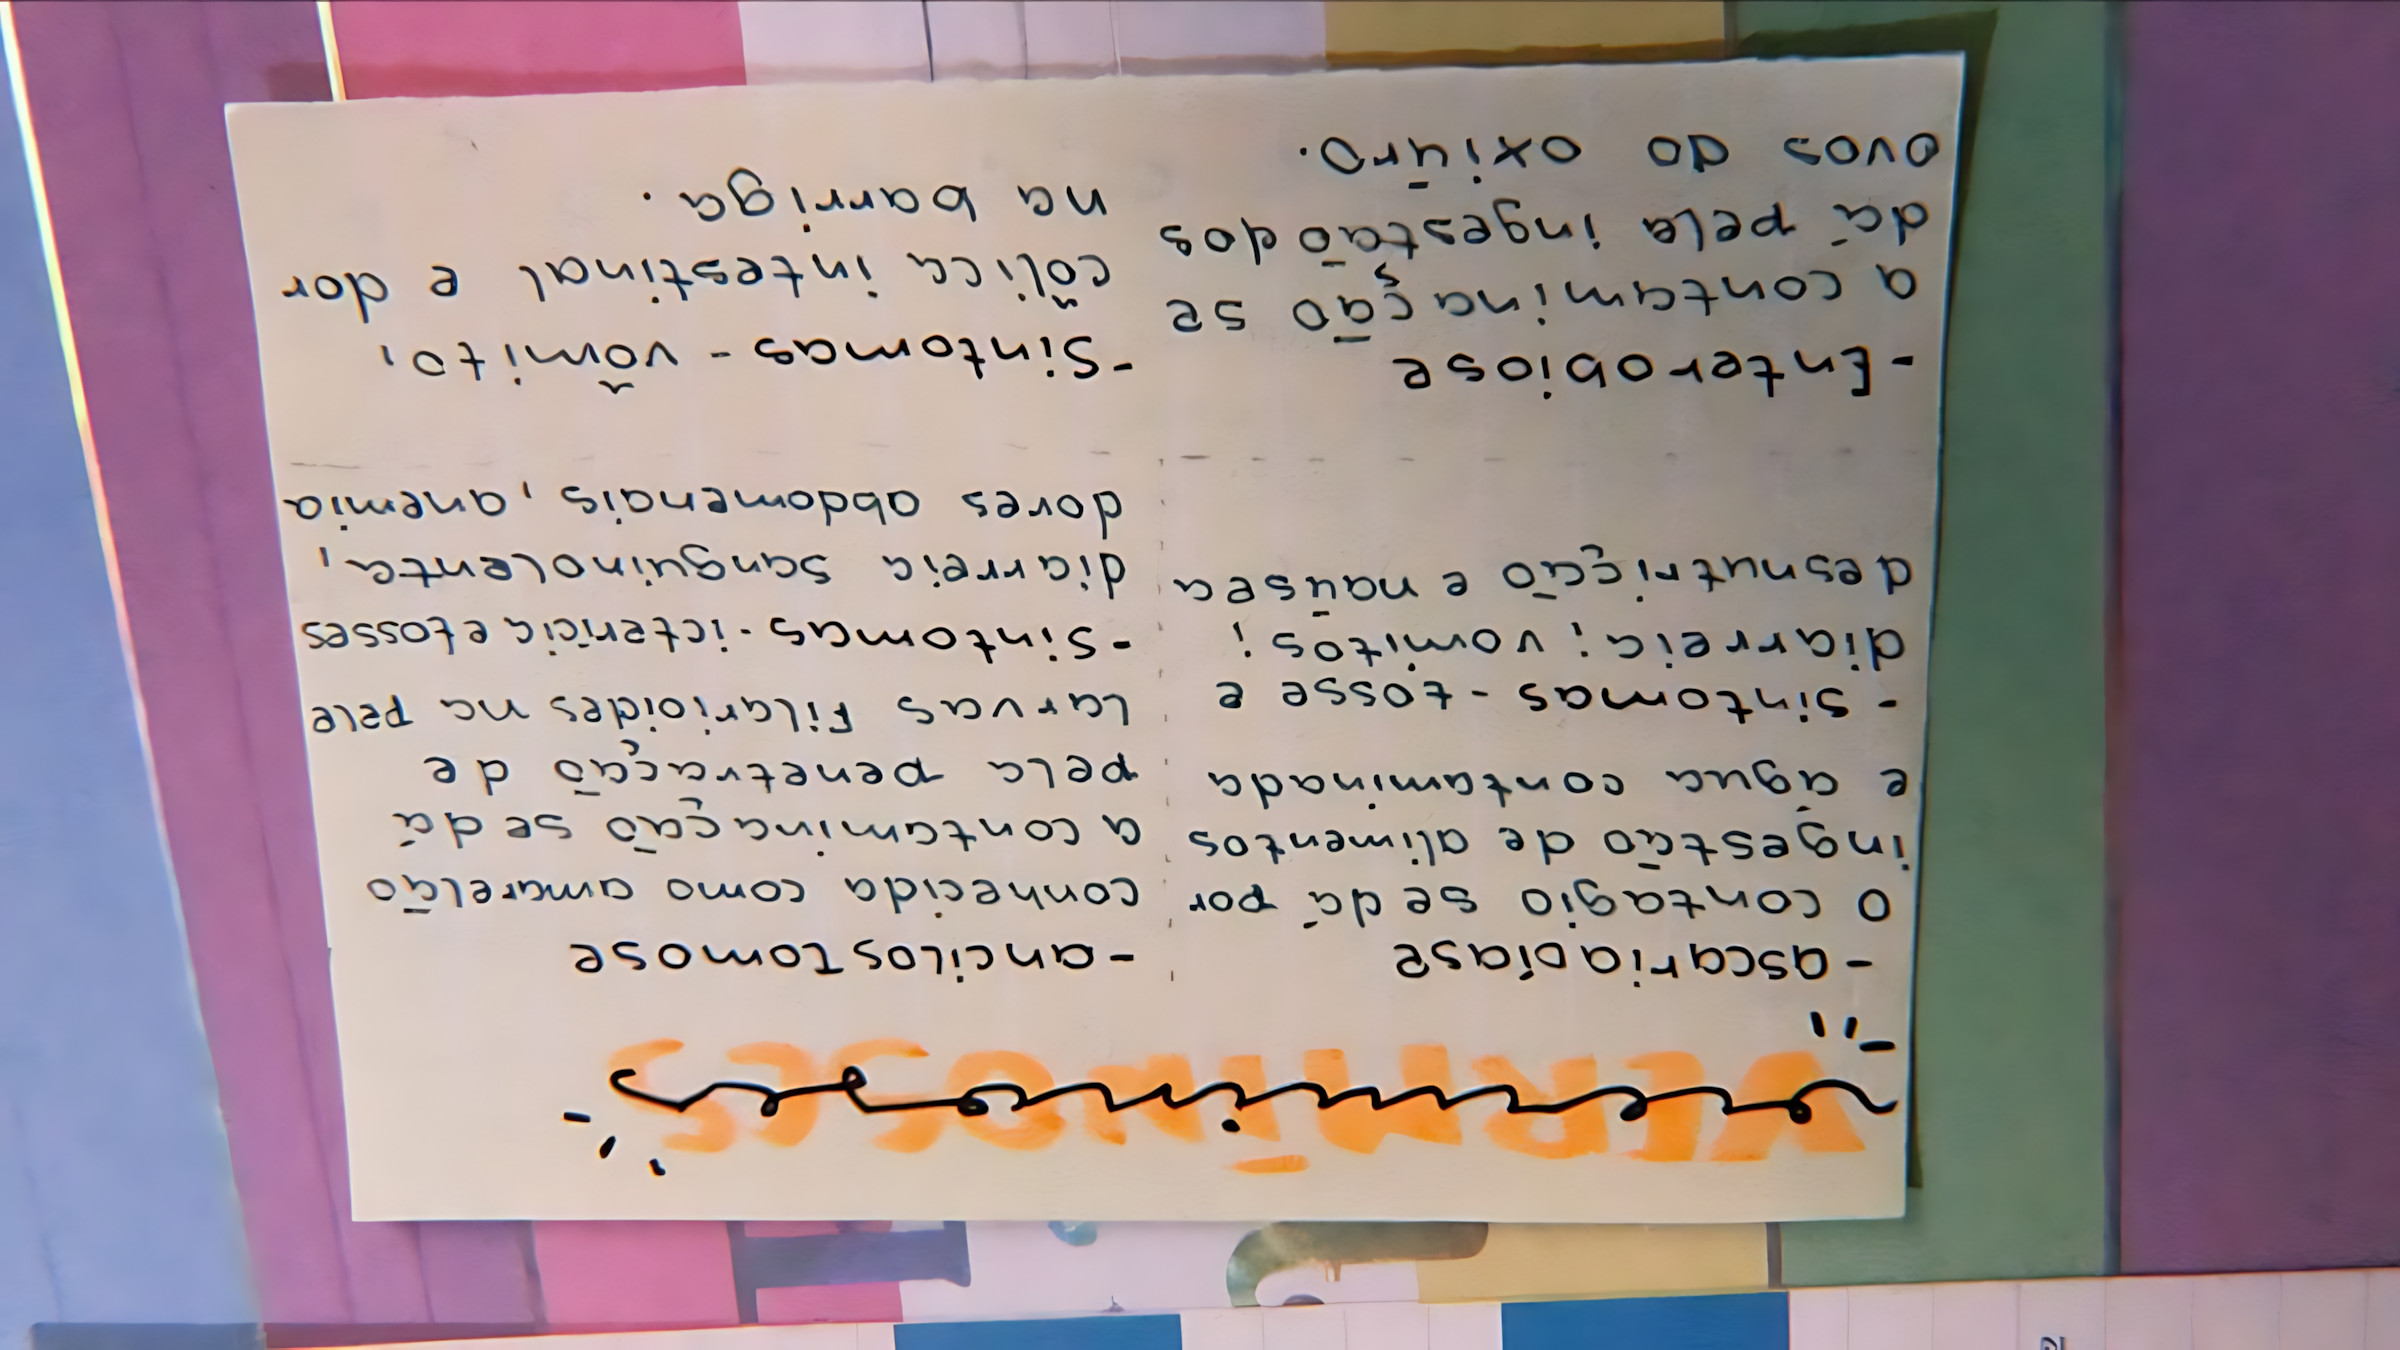 VERMINOSES
verminoses
-ascariadíase
o contagio se dá por
ingestão de alimentos
e água contaminada
- sintomas - tosse e
diarreia; vomitos;
desnutricção e naúsea
-ancilostomose
conhecida como amarelão
a contaminação se dá
pela penetracção de
Larvas Filarioides na pele
-Sintomas-icterícia e tosses
diarreia sanguinolenta,
dores abdomenais, anemia
-Enterobiose
a contaminação se
dá pela ingestão dos
ovos do oxiúro.
-Sintomas - vômito,
cólica intestinal e dor
na barriga.